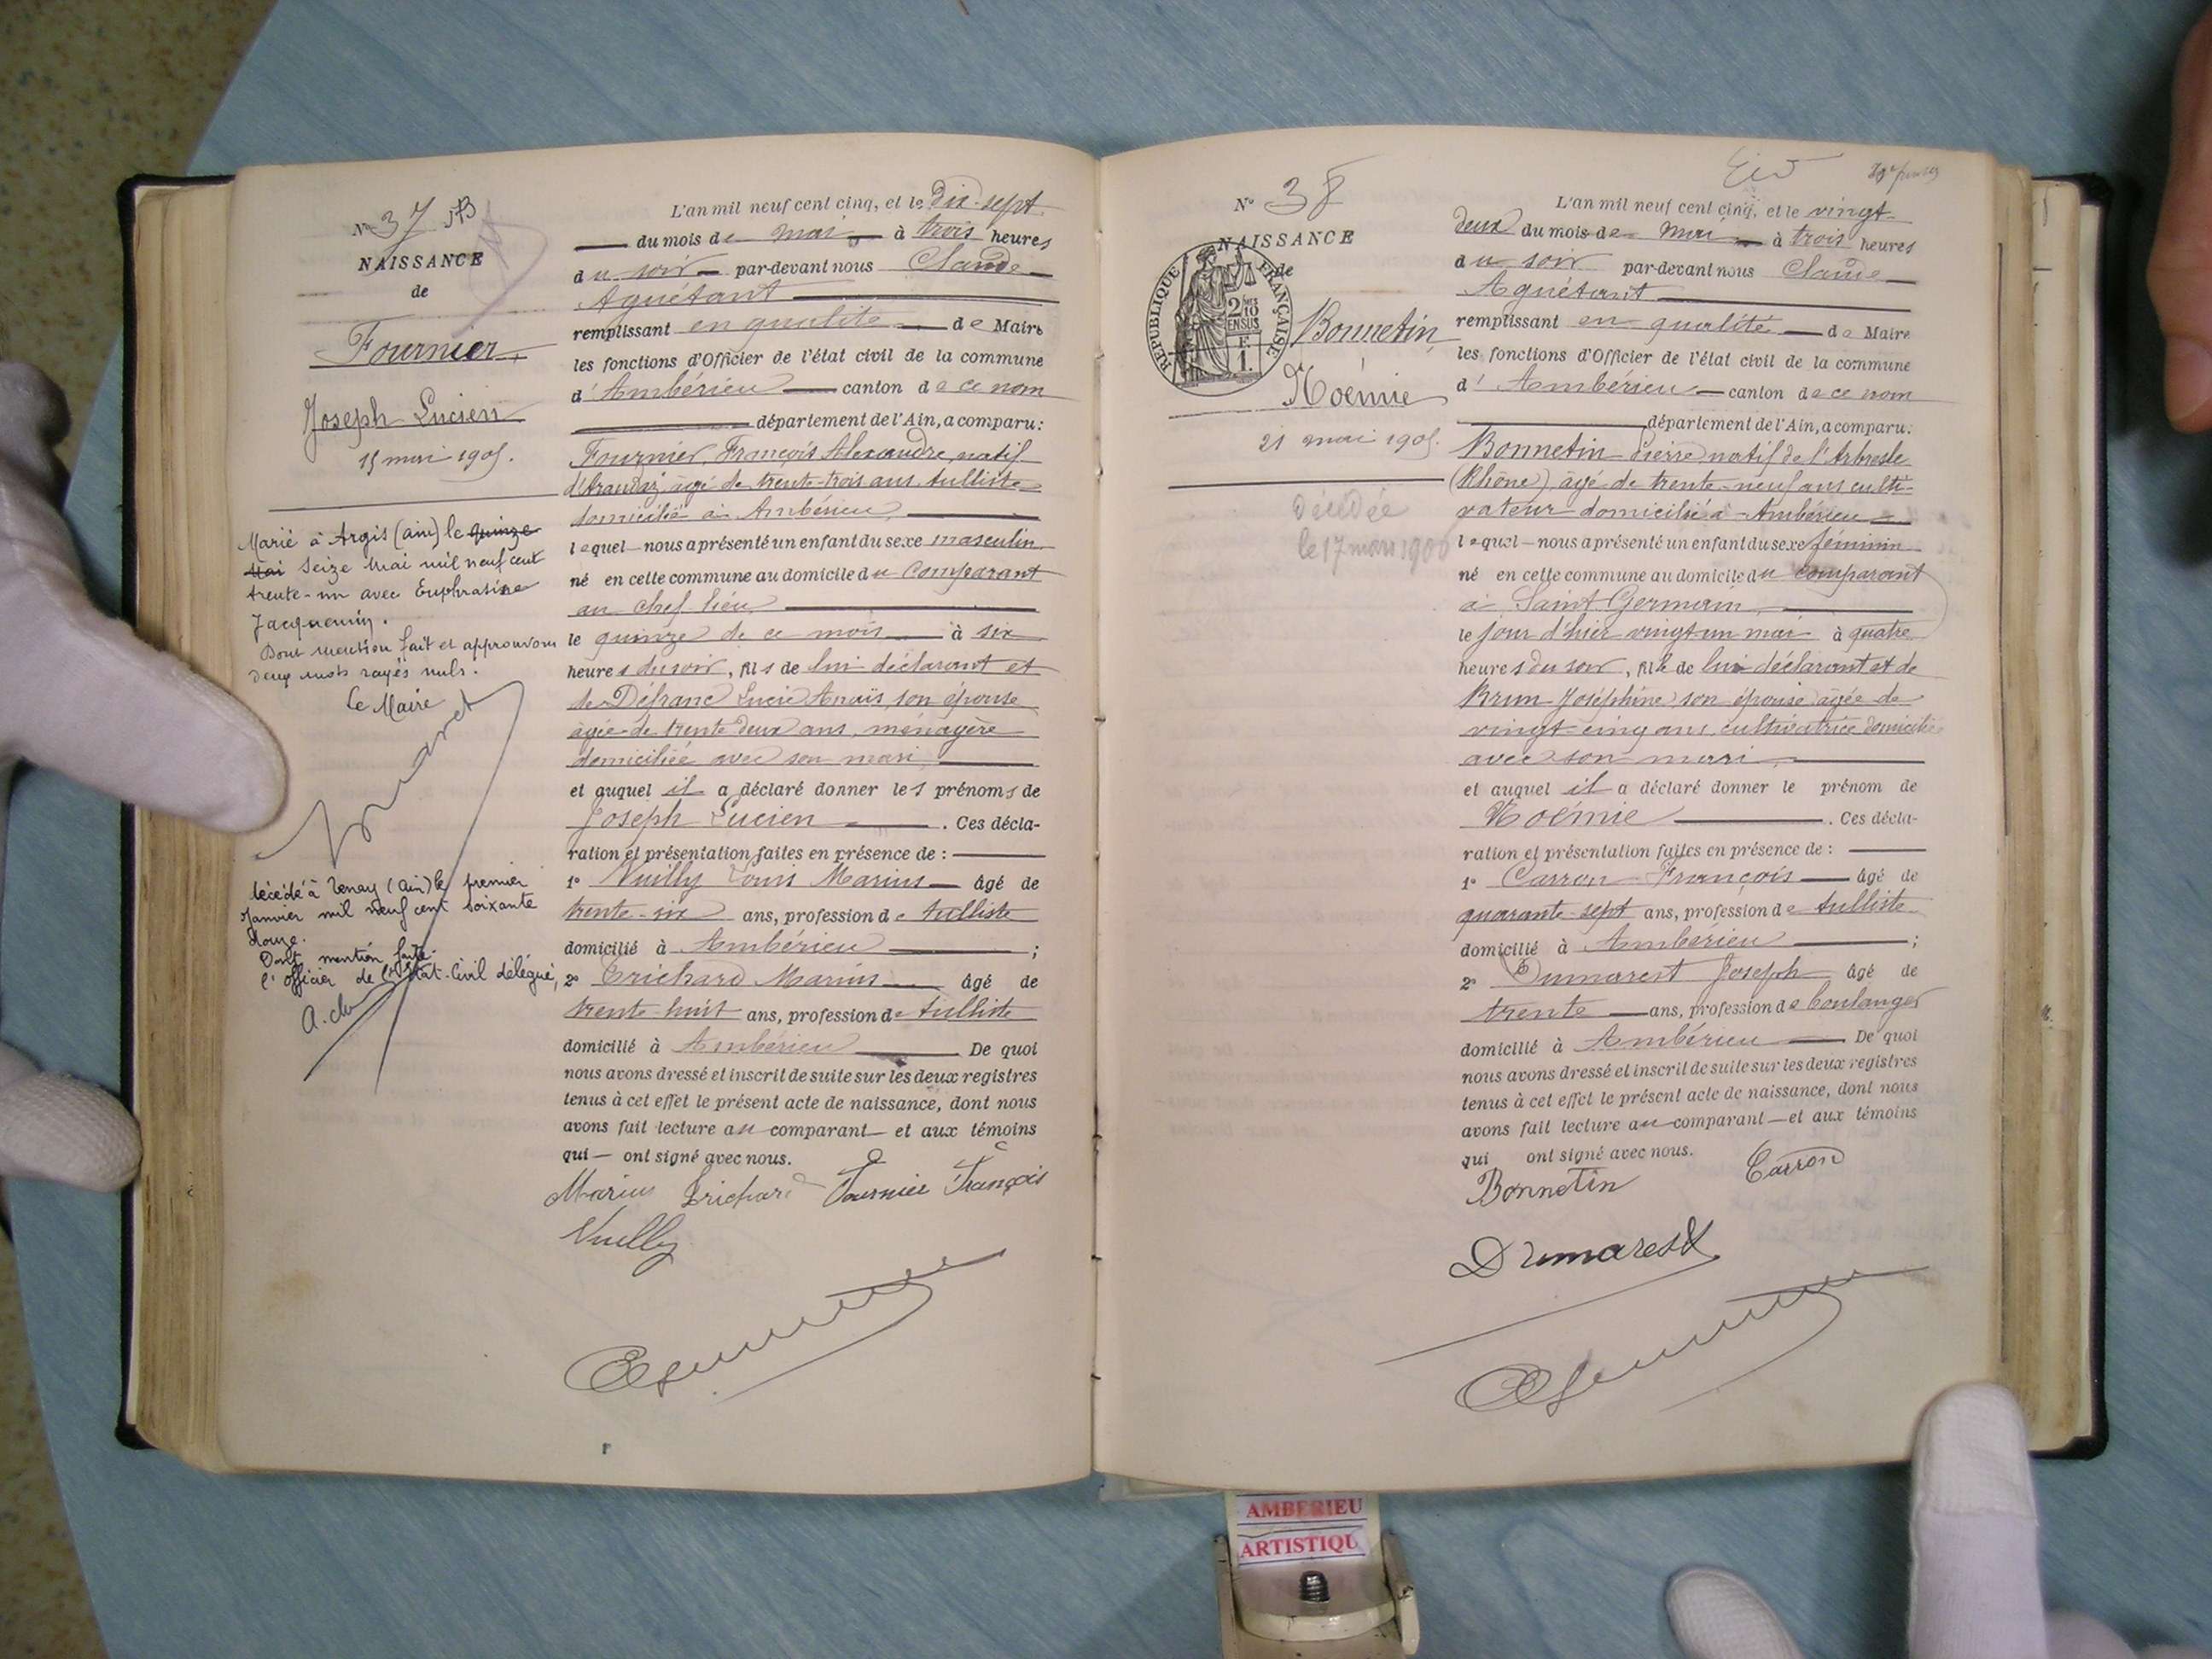 N° 37
NAISSANCE
de
Fournier
Joseph Lucien
15 mai 1905.
Marié à Argis (ain) le quinze
Mai Seize Mai mil neuf cent
trente-un avec Euphrasine
Jacquemin.
Dont mention fait et approuvons
deux mots rayés nuls.
Le Maire
décédé à Tenay (Ain) le premier
Janvier mil neuf cent soixante
douze.
Dont mention faite.
l'officier de l'Etat-Civil délégué,
L'an mil neuf cent cinq, et le dix-sept
du mois de mai à trois heures
du soir par-devant nous Claude
Aguétant
remplissant en qualité de Maire
les fonctions d'Officier de l'état civil de la commune
d'Ambérieu canton de ce nom
département de l'Ain, a comparu:
Fournier, François Alexandre, natif
d'Arandaz, âgé de trente-trois ans, tulliste
domicilié à Ambérieu,
lequel nous a présenté un enfant du sexe masculin
né en cette commune au domicile du comparant
au chef-lieu,
le quinze de ce mois à six
heures du soir, fils de lui déclarant et
de Défranc Lucie Anaïs, son épouse
âgée de trente deux ans, ménagère
domiciliée avec son mari,
et auquel il a déclaré donner les prénoms de
Joseph Lucien. Ces décla-
ration et présentation faites en présence de :
1° Vuilly Louis Marius âgé de
trente-six ans, profession de tulliste
domicilié à Ambérieu ;
2° Trichard Marius âgé de
trente-huit ans, profession de tulliste
domicilié à Ambérieu De quoi
nous avons dressé et inscrit de suite sur les deux registres
tenus à cet effet le présent acte de naissance, dont nous
avons fait lecture au comparant et aux témoins
qui ont signé avec nous.
Marius Trichard Fournier François
Vuilly
N° 38
NAISSANCE
de
REPUBLIQUE FRANÇAISE
2/10
EN SUS
1 F.
Bonnetin
Noémie
21 mai 1905.
Décédée
le 17 mars 1906
L'an mil neuf cent cinq, et le vingt-
deux du mois de mai à trois heures
du soir par-devant nous Claude
Aguétant
remplissant en qualité de Maire
les fonctions d'Officier de l'état civil de la commune
d'Ambérieu canton de ce nom
département de l'Ain, a comparu:
Bonnetin Pierre, natif de l'Arbresle
(Rhône), âgé de trente-neuf ans culti-
vateur domicilié à Ambérieu
lequel nous a présenté un enfant du sexe féminin
né en cette commune au domicile du comparant
à Saint Germain,
le jour d'hier vingt-un mai à quatre
heures du soir, fille de lui déclarant et de
Brun Joséphine, son épouse âgée de
vingt-cinq ans, cultivatrice domiciliée
avec son mari,
et auquel il a déclaré donner le prénom de
Noémie. Ces décla-
ration et présentation faites en présence de :
1° Carron François âgé de
quarante-sept ans, profession de tulliste
domicilié à Ambérieu ;
2° Dumarest Joseph âgé de
trente ans, profession de boulanger
domicilié à Ambérieu De quoi
nous avons dressé et inscrit de suite sur les deux registres
tenus à cet effet le présent acte de naissance, dont nous
avons fait lecture au comparant et aux témoins
qui ont signé avec nous.
Bonnetin Carron
Dumarest
AMBERIEU
ARTISTIQU